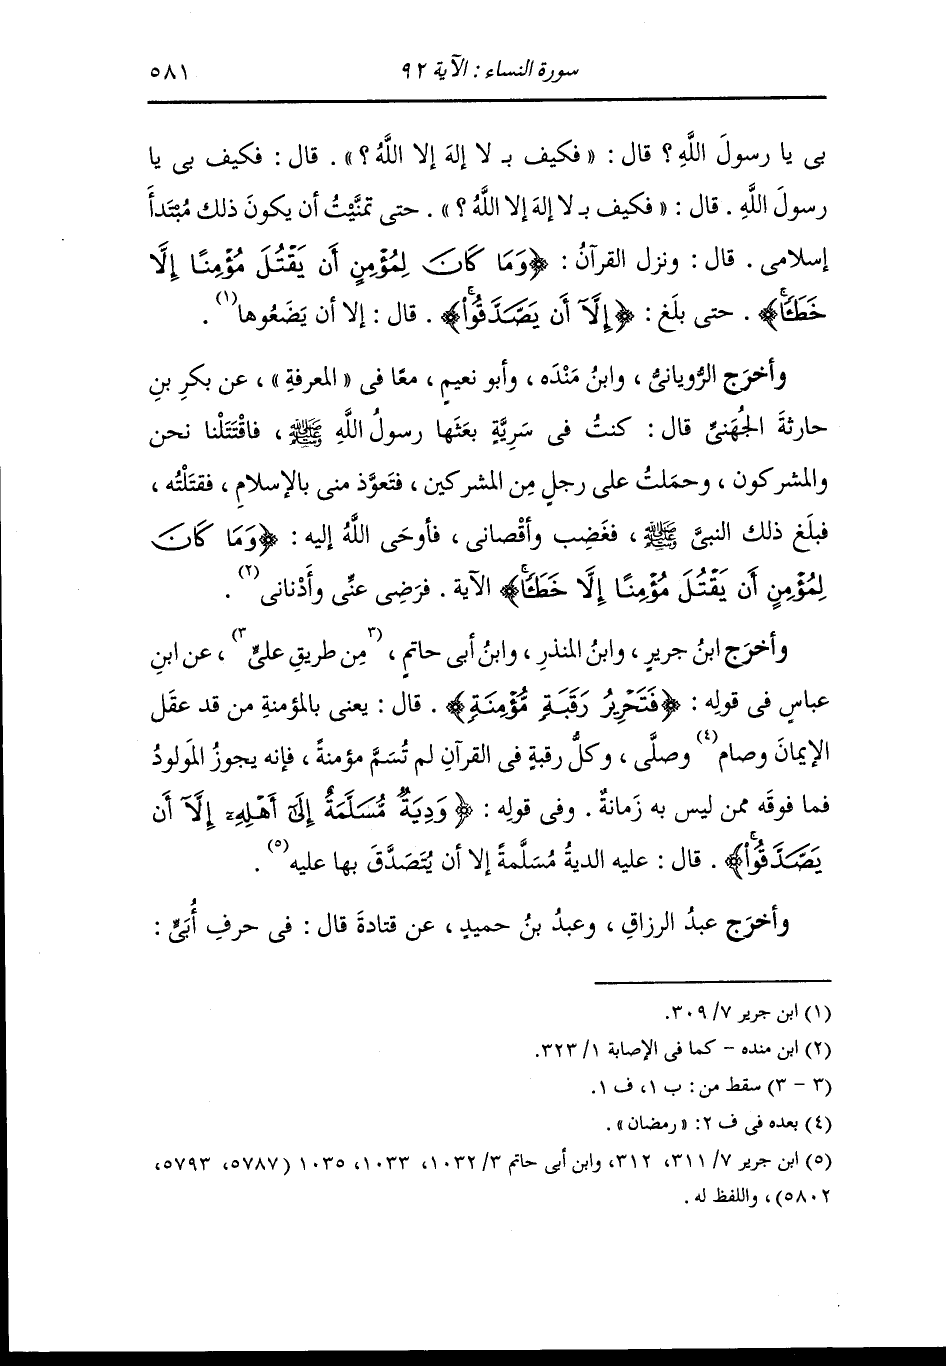 سورة النساء : الآية ٩٢ ٥٨١
بى يا رسولَ اللَّهِ ؟ قال : « فكيف بـ لا إلهَ إلا اللَّهُ ؟ » . قال : فكيف بى يا
رسولَ اللَّهِ . قال : « فكيف بـ لا إلهَ إلا اللَّهُ ؟ » . حتى تمنَّيْتُ أن يكونَ ذلك مُبْتَدأَ
إسلامى . قال : ونزل القرآنُ : ﴿وَمَا كَانَ لِمُؤْمِنٍ أَن يَقْتُلَ مُؤْمِنًا إِلَّا
خَطَـًٔاۚ﴾ . حتى بلَغ : ﴿إِلَّآ أَن يَصَّدَّقُواْۚ﴾ . قال : إلا أن يَضَعُوها(١) .
وأخرَج الرُّويانىُّ ، وابنُ مَنْدَه ، وأبو نعيمٍ ، معًا فى « المعرفةِ » ، عن بكرِ بنِ
حارثةَ الجُهَنىِّ قال : كنتُ فى سَرِيَّةٍ بعَثَها رسولُ اللَّهِ ﷺ ، فاقْتَتَلْنا نحن
والمشركون ، وحمَلتُ على رجلٍ مِن المشركين ، فتَعوَّذ منى بالإسلامِ ، فقتَلْتُه ،
فبلَغ ذلك النبىَّ ﷺ ، فغَضِب وأقْصانى ، فأوحَى اللَّهُ إليه : ﴿وَمَا كَانَ
لِمُؤْمِنٍ أَن يَقْتُلَ مُؤْمِنًا إِلَّا خَطَـًٔاۚ﴾ الآية . فرَضِى عنِّى وأَدْنانى(٢) .
وأخرَج ابنُ جريرٍ ، وابنُ المنذرِ ، وابنُ أبى حاتمٍ ، (٣مِن طريقِ علىٍّ٣) ، عن ابنِ
عباسٍ فى قولِه : ﴿فَتَحْرِيرُ رَقَبَةٍ مُّؤْمِنَةٍ﴾ . قال : يعنى بالمؤمنةِ من قد عقَل
الإيمانَ وصام(٤) وصلَّى ، وكلُّ رقبةٍ فى القرآنِ لم تُسَمَّ مؤمنةً ، فإنه يجوزُ المَولودُ
فما فوقَه ممن ليس به زَمانةٌ . وفى قولِه : ﴿وَدِيَةٌ مُّسَلَّمَةٌ إِلَىٰٓ أَهْلِهِۦٓ إِلَّآ أَن
يَصَّدَّقُواْۚ﴾ . قال : عليه الديةُ مُسَلَّمةً إلا أن يُتَصَدَّقَ بها عليه(٥) .
وأخرَج عبدُ الرزاقِ ، وعبدُ بنُ حميدٍ ، عن قتادةَ قال : فى حرفِ أُبَىٍّ :
(١) ابن جرير ٧/ ٣٠٩.
(٢) ابن منده – كما فى الإصابة ١/ ٣٢٣.
(٣ – ٣) سقط من : ب ١، ف ١.
(٤) بعده فى ف ٢: « رمضان » .
(٥) ابن جرير ٧/ ٣١١، ٣١٢، وابن أبى حاتم ٣/ ١٠٣٢، ١٠٣٣، ١٠٣٥ (٥٧٨٧، ٥٧٩٣،
٥٨٠٢)، واللفظ له .